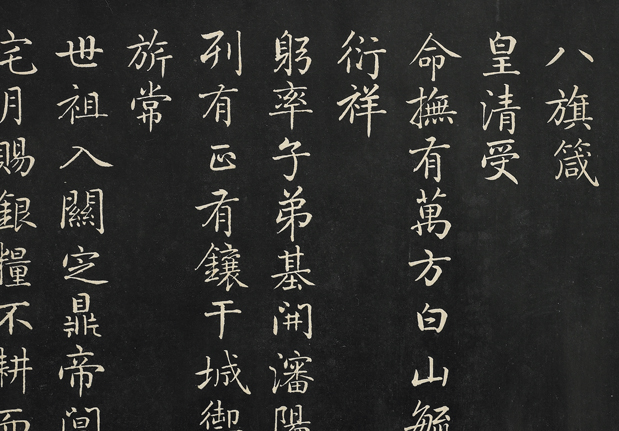 八旗箴
皇清受
命撫有萬方白山毓
衍祥
躬率子弟基開瀋陽
列有正有鑲干城御
旂常
世祖入關定鼎帝閭
宅月賜銀糧不耕而